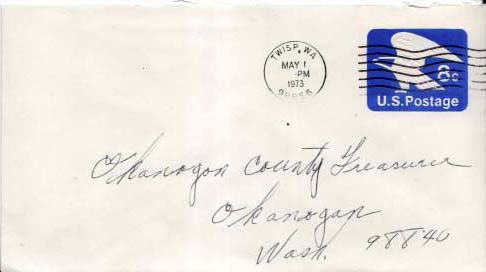 TWISP, WA
MAY 1
PM
1973
98856
8c
U.S. Postage
Okanogon County Treasurer
Okanogan
Wash. 98840